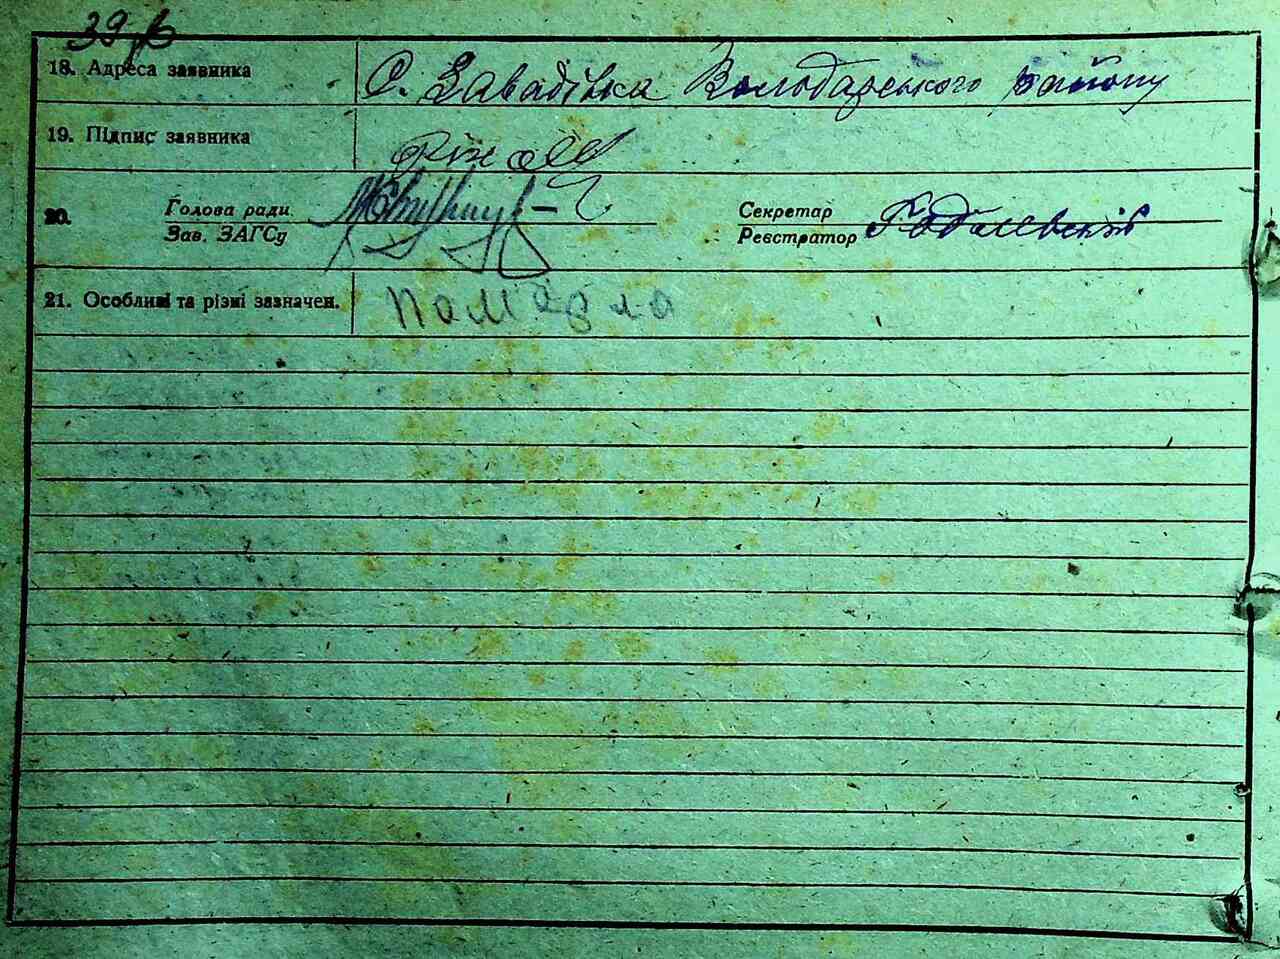 39
18. Адреса заявника С. Завадівка Володарського району
19. Підпис заявника
20. Голова ради Секретар
Зав. ЗАГСу Реєстратор
21. Особливі та різні зазначен. померла